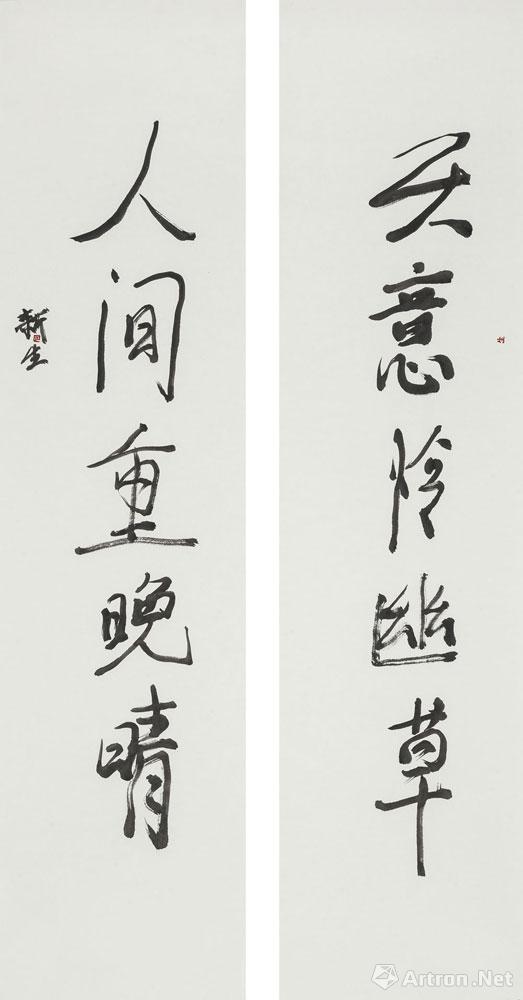 天意怜幽草
人间重晚晴
新生
Artron.Net